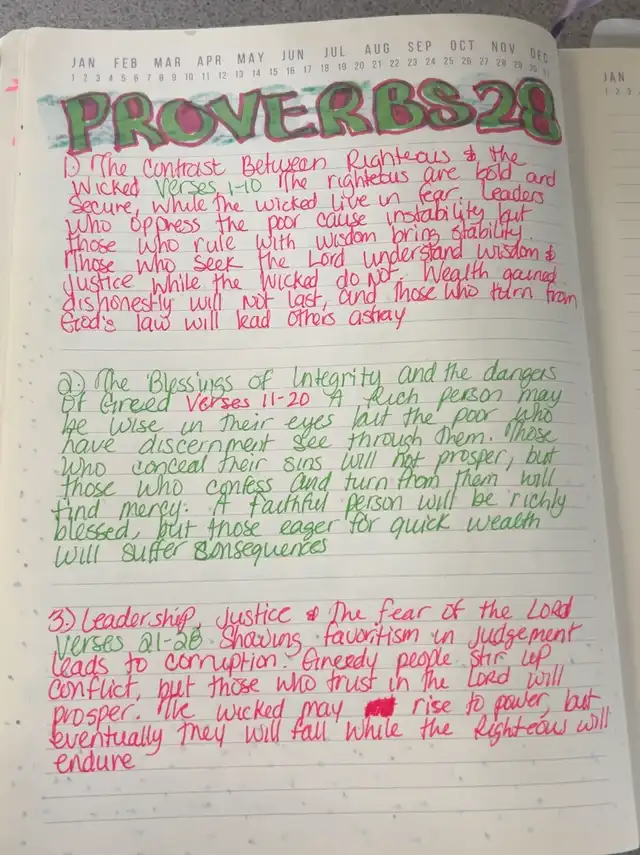 JAN FEB MAR APR MAY JUN JUL AUG SEP OCT NOV DEC
1 2 3 4 5 6 7 8 9 10 11 12 13 14 15 16 17 18 19 20 21 22 23 24 25 26 27 28 29 30 31
JAN
1 2 3
PROVERBS 28
1) The Contrast Between Righteous & the
Wicked Verses 1-10 The righteous are bold and
Secure, while the wicked live in fear. Leaders
who oppress the poor cause instability but
those who rule with wisdom bring stability.
Those who seek the Lord understand wisdom &
justice while the wicked do not. Wealth gained
dishonestly will not last, and those who turn from
God's law will lead others astray
2.) The Blessings of Integrity and the dangers
of Greed Verses 11-20 A Rich person may
be wise in their eyes but the poor who
have discernment see through them. Those
who conceal their sins will not prosper, but
those who confess and turn from them will
find mercy. A faithful person will be richly
blessed, but those eager for quick wealth
will suffer consequences
3.) Leadership, justice & The fear of the Lord
Verses 21-28 Showing favoritism in judgement
leads to corruption. Greedy people stir up
conflict, but those who trust in the Lord will
prosper. The wicked may rise to power, but
eventually they will fall while the Righteous will
endure